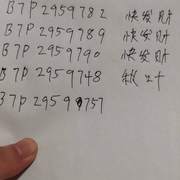 B7P 2959782 快发财
B7P 2959789 快发财
B7P 2959790 快发财
B7P 2959748
B7P 2959757